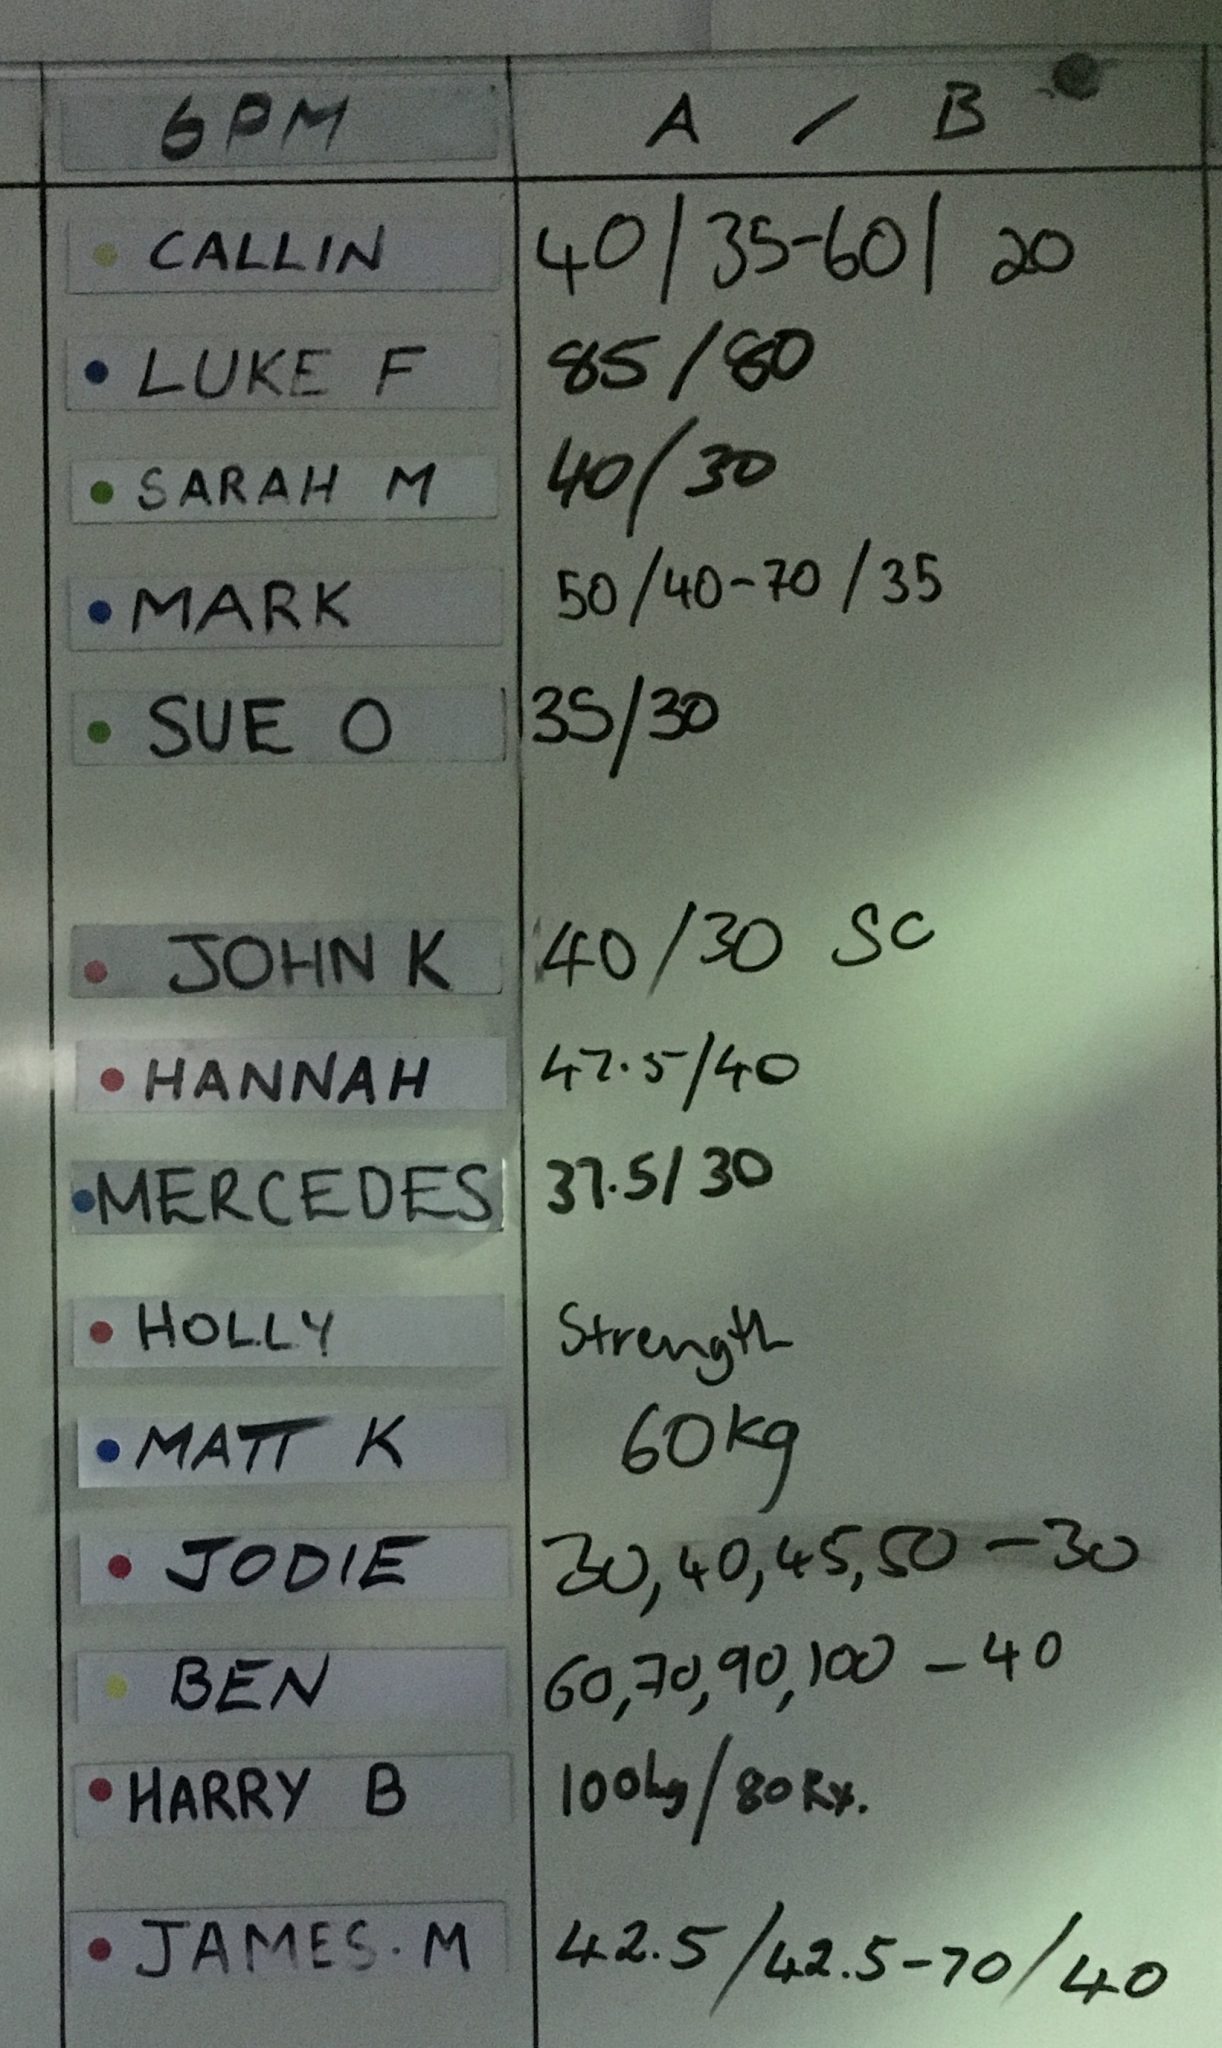 6PM A / B
CALLIN 40/35-60/ 20
LUKE F 85/80
SARAH M 40/30
MARK 50/40-70/35
SUE O 35/30
JOHN K 40/30 SC
HANNAH 47.5/40
MERCEDES 37.5/30
HOLLY Strength
MATT K 60kg
JODIE 30,40,45,50-30
BEN 60,70,90,100-40
HARRY B 100kg/80Rx.
JAMES.M 42.5/42.5-70/40